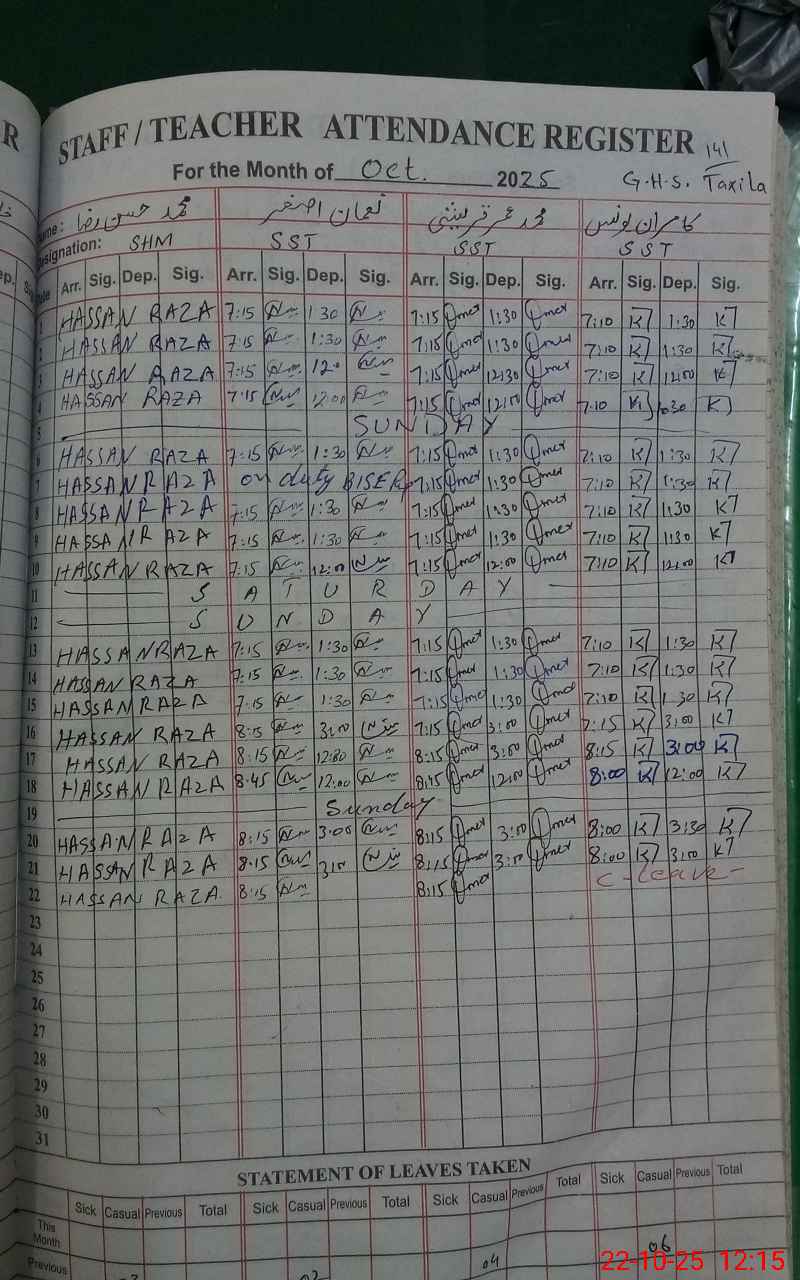 STAFF / TEACHER ATTENDANCE REGISTER 141
For the Month of Oct. 2025 G.H.S. Taxila
Name: محمد حسن رضا نعمان اصغر محمد عمر قریشی کامران یونس
Designation: SHM SST SST SST
Date Arr. Sig. Dep. Sig. Arr. Sig. Dep. Sig. Arr. Sig. Dep. Sig. Arr. Sig. Dep. Sig.
1 HASSAN RAZA 7:15 1:30 7:15 1:30 7:10 K7 1:30 K7
2 HASSAN RAZA 7:15 1:30 7:15 1:30 7:10 K7 1:30 K7
3 HASSAN RAZA 7:15 7:15 12:30 7:10 K7 12:00 K7
4 HASSAN RAZA 7:15 12:00 7:15 12:00 7:10 K7 K7
5 SUNDAY
6 HASSAN RAZA 7:15 1:30 7:15 1:30 7:10 K7 1:30 K7
7 HASSAN RAZA on duty 7:15 1:30 7:10 K7 1:30 K7
8 HASSAN RAZA 7:15 1:30 7:15 1:30 7:10 K7 1:30 K7
9 HASSAN RAZA 7:15 1:30 7:15 1:30 7:10 K7 1:30 K7
10 HASSAN RAZA 7:15 12:00 7:15 12:00 7:10 K7 12:00 K7
11 SATURDAY
12 SUNDAY
13 HASSAN RAZA 7:15 1:30 7:15 1:30 7:10 K7 1:30 K7
14 HASSAN RAZA 7:15 1:30 7:15 1:30 7:10 K7 1:30 K7
15 HASSAN RAZA 7:15 1:30 7:15 1:30 7:10 K7 1:30 K7
16 HASSAN RAZA 8:15 3:00 7:15 3:00 7:15 K7 3:00 K7
17 HASSAN RAZA 8:15 8:15 3:00 8:15 K7 3:00 K7
18 HASSAN RAZA 8:45 12:00 8:45 12:00 8:00 K7 12:00 K7
19 Sunday
20 HASSAN RAZA 8:15 3:00 8:15 3:00 8:00 K7 3:30 K7
21 HASSAN RAZA 8:15 3:00 8:15 3:00 8:00 K7 3:00 K7
22 HASSAN RAZA 8:15 8:15 C-leave-
23
24
25
26
27
28
29
30
31
STATEMENT OF LEAVES TAKEN
Sick Casual Previous Total Sick Casual Previous Total Sick Casual Previous Total Sick Casual Previous Total
This Month
Previous 04 06
22-10-25 12:15